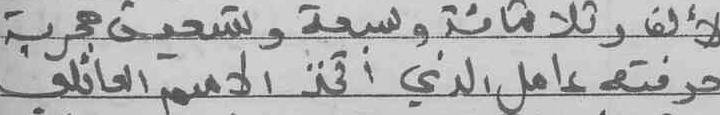 لألف وثلاثمائة وسبعة وتسعين هجرية
حرفته عامل الذي اتخذ الاسم العائلي